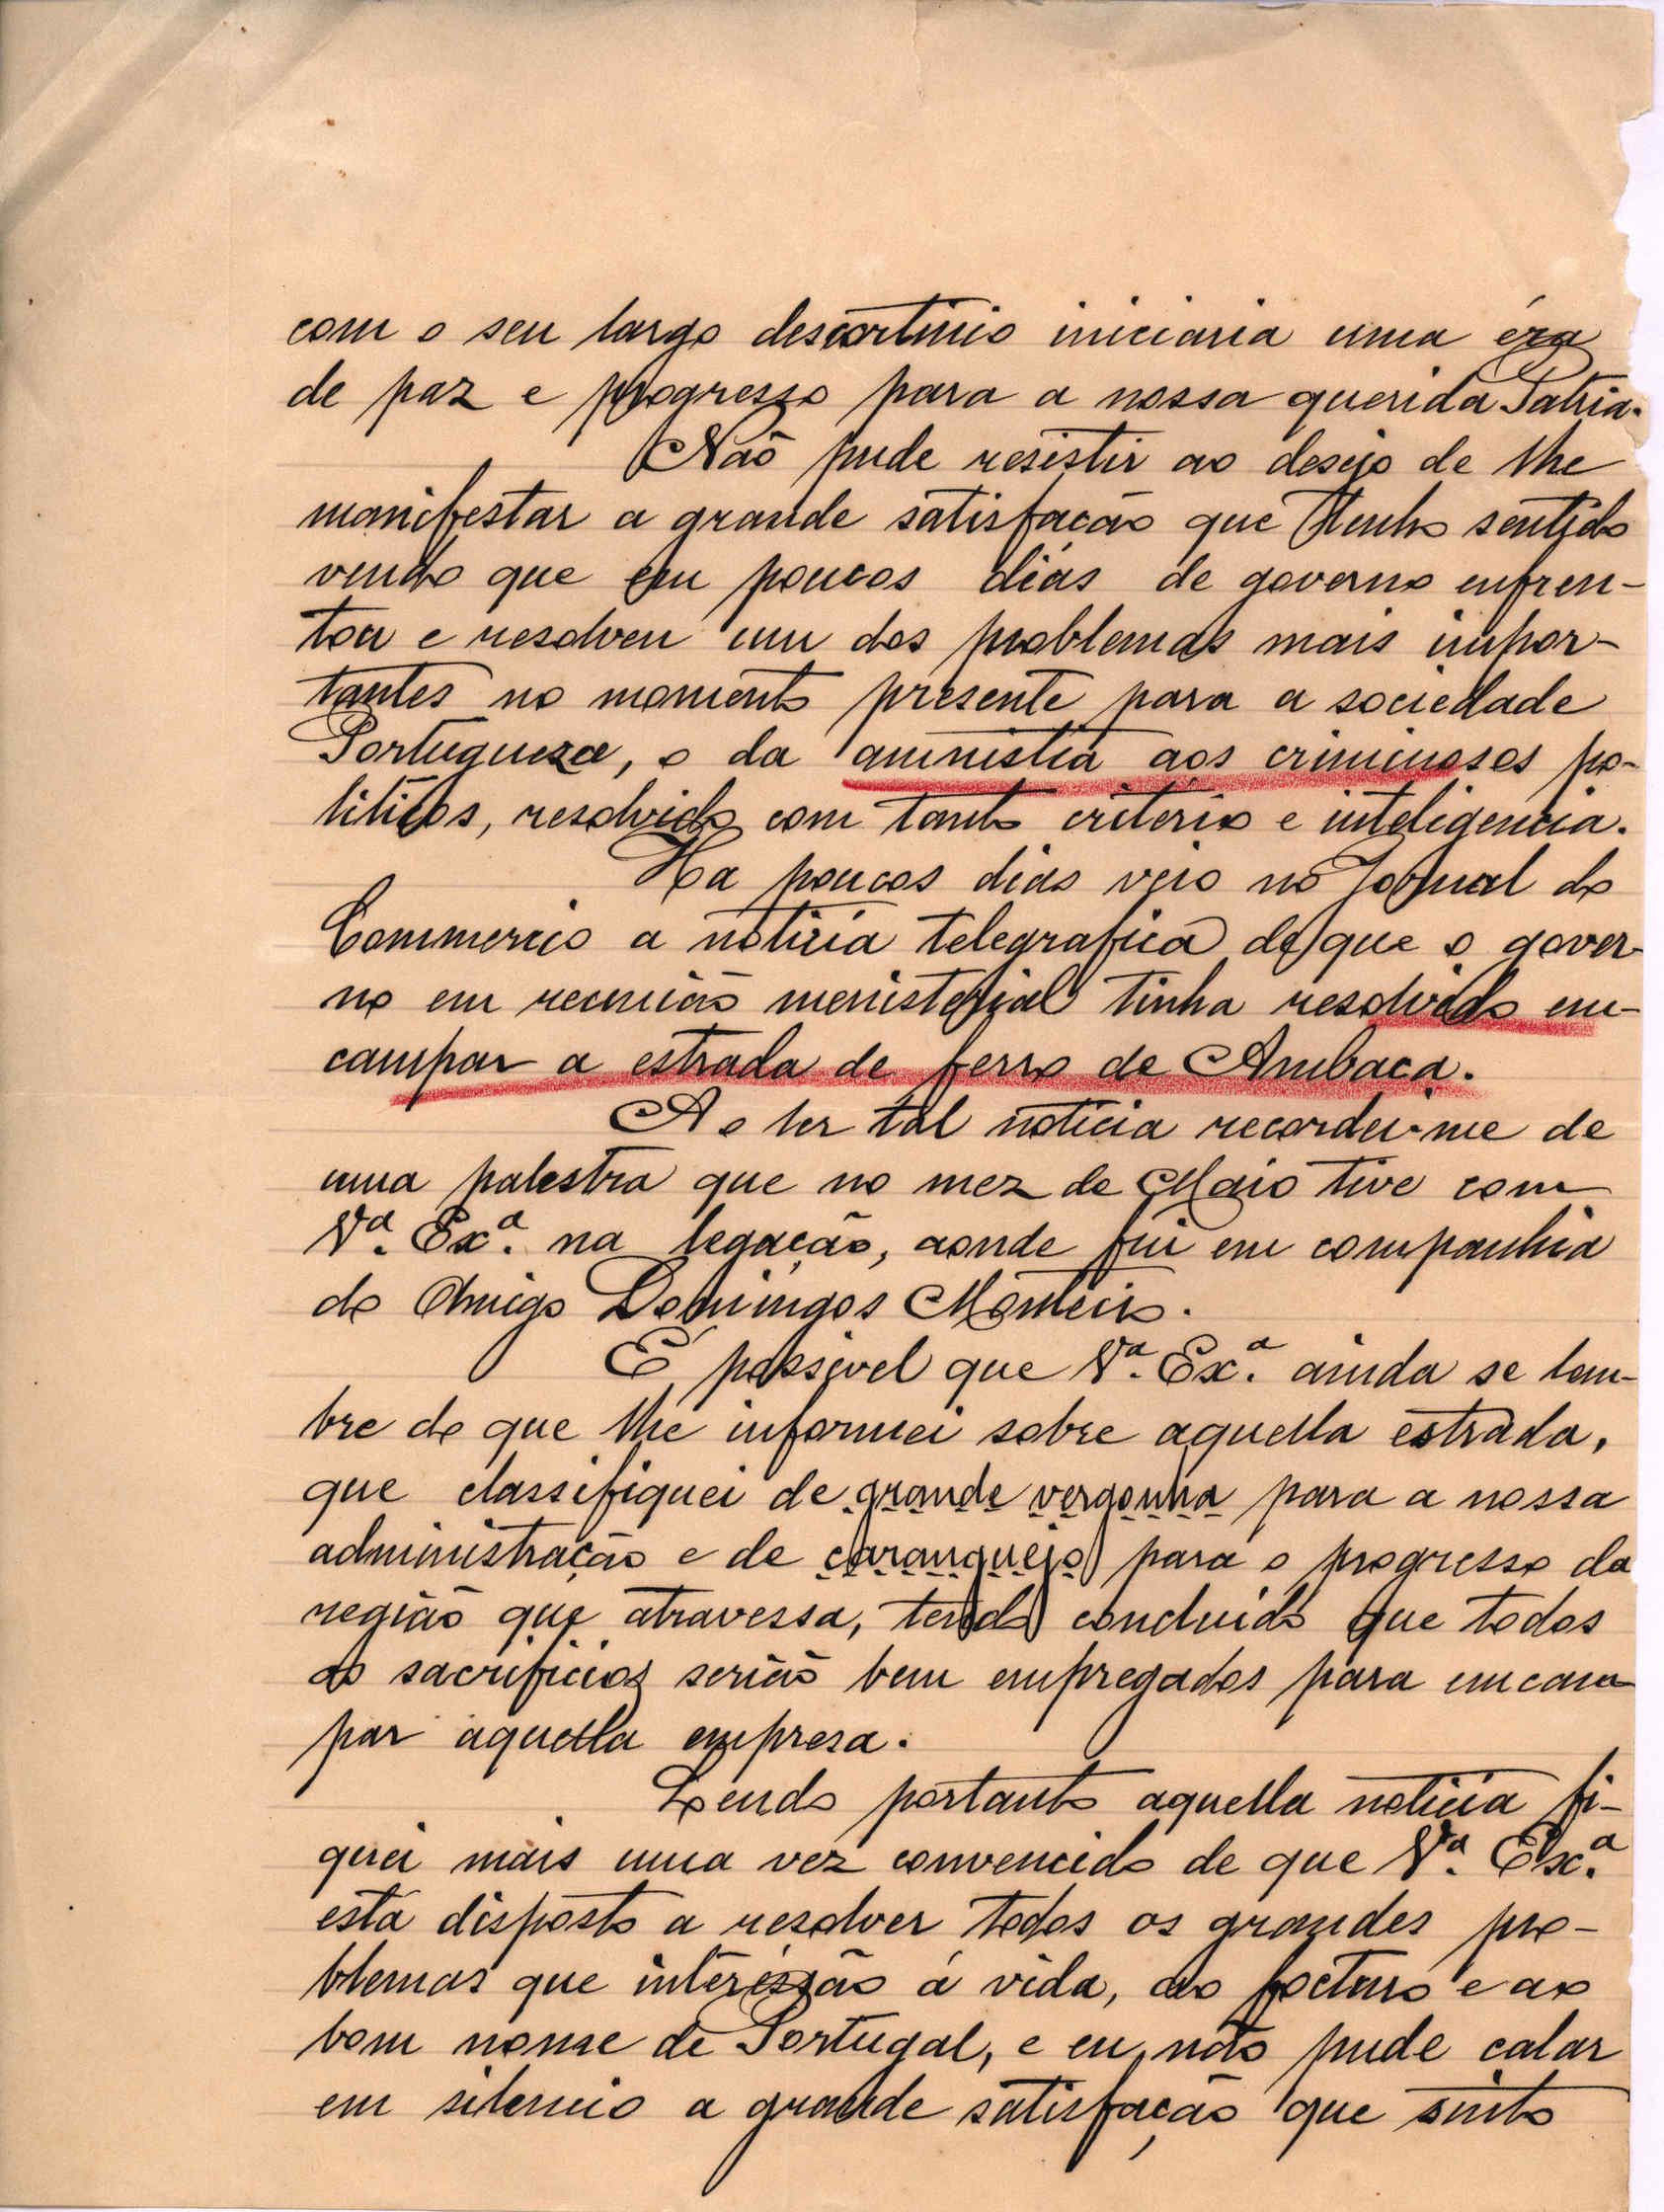 com o seu largo descortinio iniciaria uma éra
de paz e progresso para a nossa querida Patria.
Não pude resistir ao desejo de lhe
manifestar a grande satisfação que tenho sentido
vendo que em poucos dias de governo enfren-
tou e resolveu um dos problemas mais impor-
tantes no momento presente para a sociedade
Portugueza, o da amnistia aos criminosos po-
liticos, resolvido com tanto critério e inteligencia.
Ha poucos dias veio no Jornal do
Commercio a noticia telegrafica de que o gover-
no em reunião menisterial tinha resolvido em-
campar a estrada de ferro de Ambaca.
Ao ler tal noticia recordei-me de
uma palestra que no mez de Maio tive com
Vª. Exª. na legação, aonde fui em companhia
do Amigo Domingos Monteiro.
É possivel que Vª. Exª. ainda se lem-
bre do que lhe informei sobre aquella estrada,
que classifiquei de grande vergonha para a nossa
administração e de caranguejo para o progresso da
região que atravessa, tendo concluido que todos
os sacrificios serião bem empregados para emcam
par aquella empresa.
Lendo portanto aquella noticia fi-
quei mais uma vez convencido de que Vª. Exª.
está disposto a resolver todos os grandes pro-
blemas que interessão á vida, ao foeturo e ao
bom nome de Portugal, e eu não pude calar
em silencio a grande satisfação que sinto